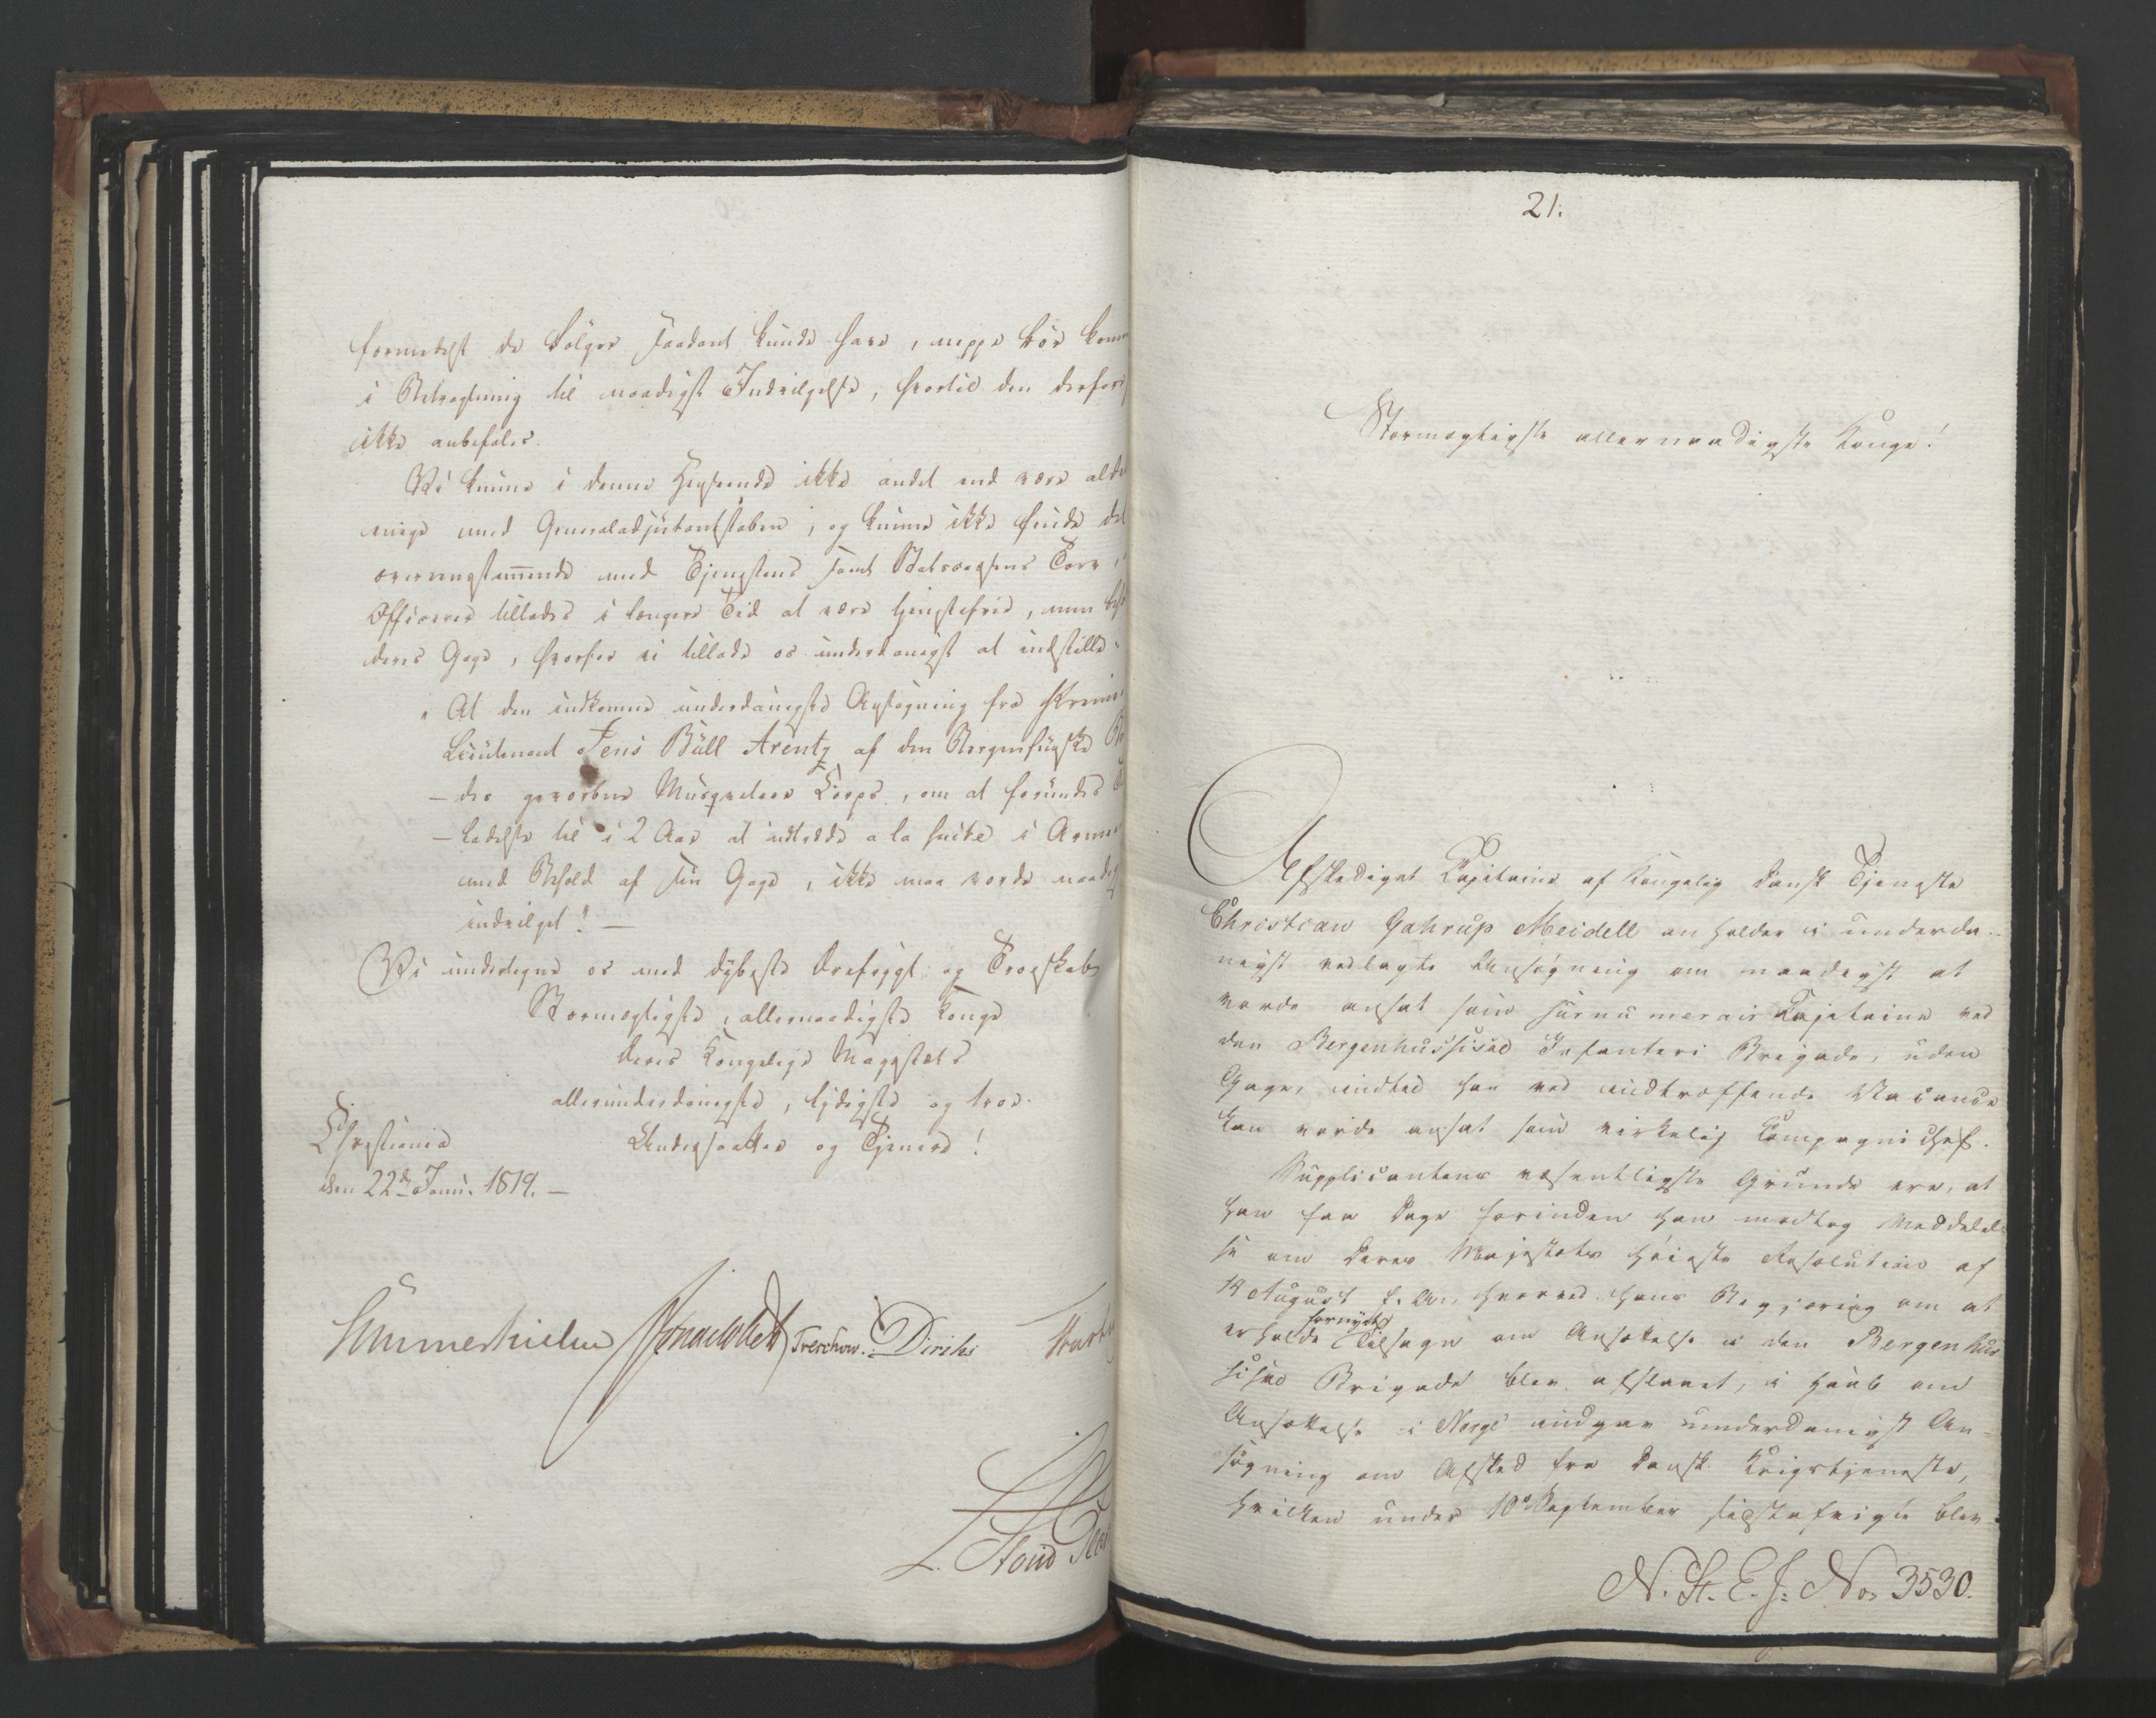 formedelst de Følger saadant kunde have, neppe bør kom
i Betragtning til naadigst Indvilgelse, hvortil den derfor
ikke anbefales.
Vi kunne i denne Henseende ikke andet end være alde
enige med Generaladjutantstaben, og kunne ikke finde det
overeensstem̅ende med Tjenestens samt Statscassens Tarv,
Officerer tillades i længere Tid at være tjenestefrie, men
deres Gage, hvorfor vi tillade os underdanigst at indstille:
"At den indkomne underdanigste Ansøgning fra Premier
Lieutenant Jens Büll Arentz af den Bergenhusiske
- des gevorbne Musqueteer Corps, om at forundes
- ladelse til i 2 Aar at udtræde a la suite i Armeen
med Behold af sin Gage, ikke maa vorde naadigst
indvilget." —
Vi undertegne os med dybeste Ærefrygt og Troeskab
Stormægtigste, allernaadigste Konge
Deres Kongelige Majestæts
allerunderdanigste, lydigste og troe
Christiania Undersaatter og Tjenere!
den 22de Janu. 1819. —
Sommerhielm Treschow. Diriks
L. Stoud
21.
Stormægtigste allernaadigste Konge!
Afskediget Capitaine af Kongelig Dansk Tjeneste
Christian Gahrup Meidell anholder i underda-
nigst vedlagte Ansøgning om naadigst at
vorde ansat som surnumerair Capitaine ved
den Bergenhusiske Infanteri Brigade, uden
Gage, indtil han ved indtræffende Vacance
kan vorde ansat som virkelig Compagnichef.
Supplicantens væsentligste Grunde ere, at
han faa Dage forinden han modtog Meddelel-
se om Deres Majestæts høieste Resolution af
14 August f. A., hvorved hans Begjæring om at
fornyet
erholde Tilsagn om Ansættelse i den Bergenhus
siske Brigade blev afslaaet, i Haab om
Ansættelse i Norge indgav underdanigst An-
søgning om Afsked fra Dansk Krigstjeneste,
hvilken under 10de September sidstafvigte blev
N. St. E. J. No 3530.